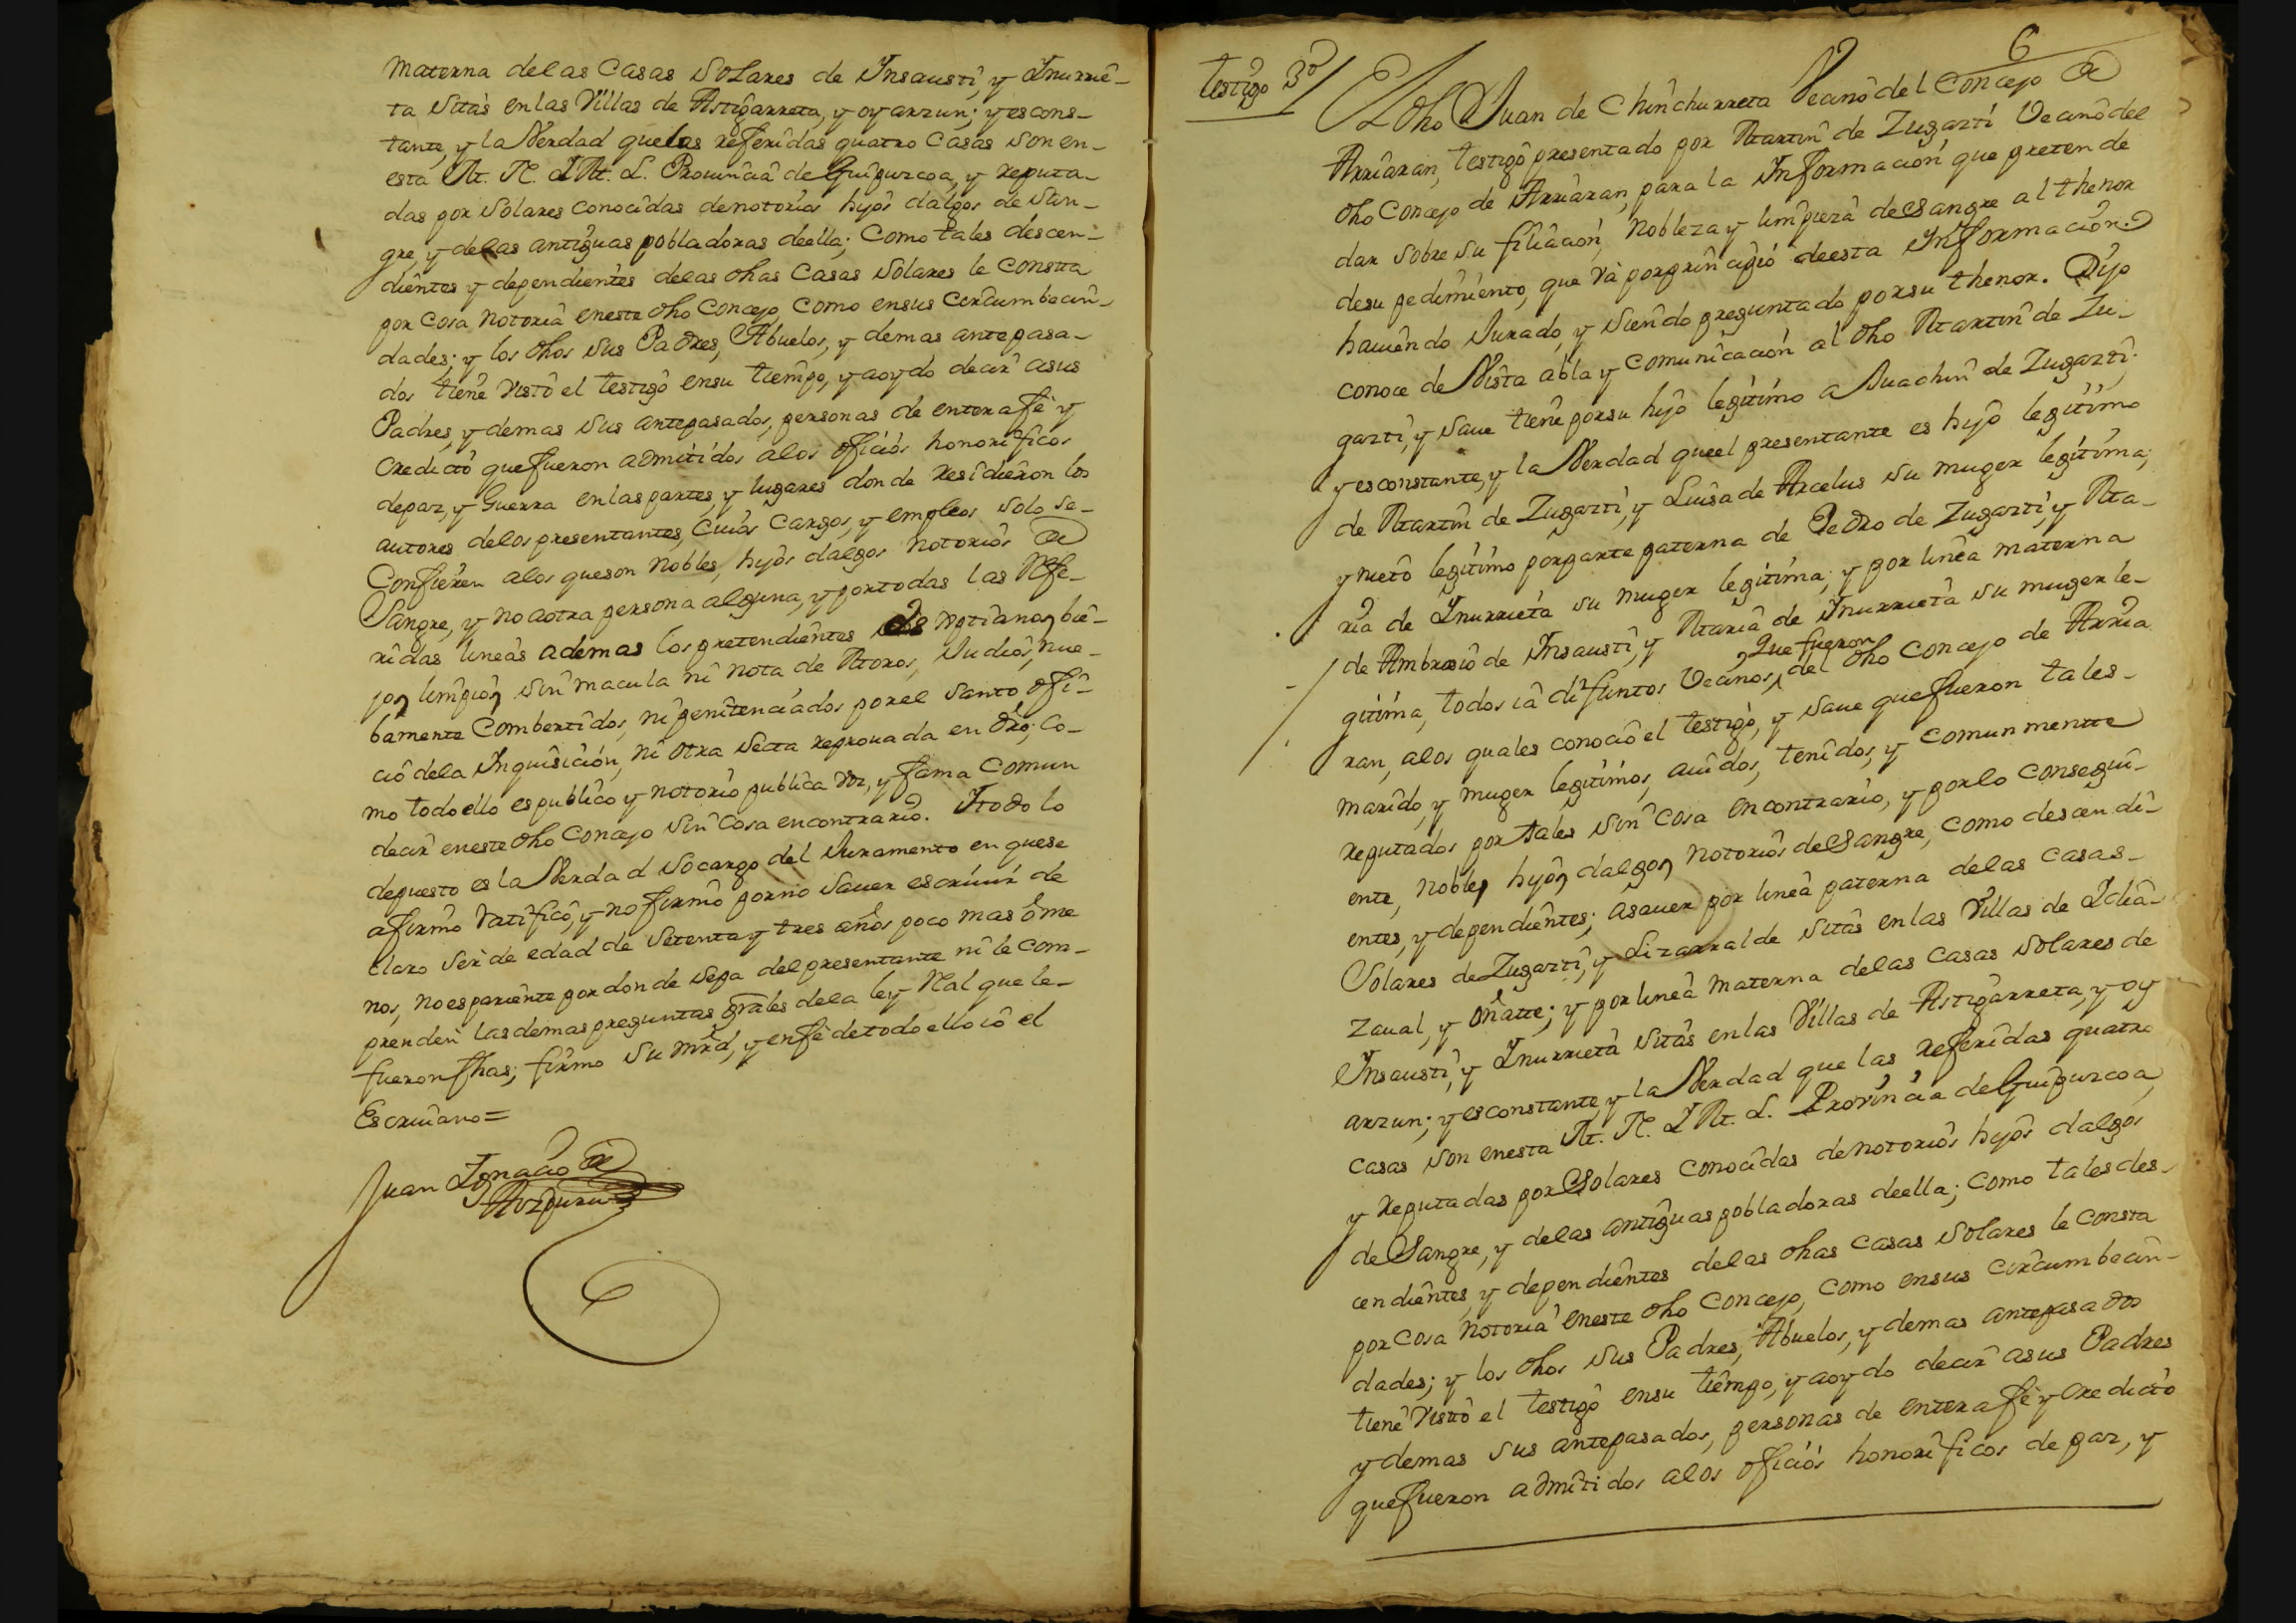 Materna delas Casas Solares de Insausti, y Inurrie-
ta Sitas enlas Villas de Astigarreta, y oyarzun; y escons-
tante, y la Verdad quelas referidas quatro Casas son en-
esta M. N. I M. L. Prouincia de Guipuzcoa, y reputa-
das por Solares conocidas denotorios hijos dalgos de San-
gre, y delas antiguas pobladoras deella; Como tales descen-
dientes y dependientes delas dhas Casas Solares le Constta
por Cosa notoria eneste dho Concejo, Como ensus Circumbecin-
dades; y los dhos sus Padres, Abuelos, y demas antepasa-
dos tiene visto el testigo ensu tiempo, y aoydo decir asus
Padres, y demas sus antepasados, personas de entera fe y
Credicto quefueron admitidos alos oficios honorificos
depaz, y Guerra enlas partes, y lugares donde residieron los
autores delos presentantes, Cuios Cargos, y empleos solo se-
Confieren alos queson Nobles, hijos dalgos notorios de
Sangre, y no aotra persona alguna, y portodas las Refe-
ridas lineas ademas los pretendientes cristianos bie-
jos limpios sin macula ni nota de Moros, Judios, nue-
bamente Combertidos, ni penitenciados porel Santo ofi-
cio dela Inquisicion, ni otra Secta reprouada en dro; Co-
mo todo ello es publico y notorio publica voz, y fama Comun
decir eneste dho Concejo sin Cosa encontrario. Itodo lo
depuesto es la Verdad socargo del Juramento en quese
afirmo ratifico, y no firmo porno sauer escriuir de
claro ser de edad de setenta y tres años poco mas ome
nos, noes pariente por donde sepa del presentante ni le Com-
prenden las demas preguntas grales dela ley Real que le-
fueron fhas; firmo su mrd, y enfe detodo ello io el
Escriuano=
Juan Ignacio de
Aozpuru
6
Testigo 3º
El dho Juan de Chinchurreta Vecino del Concejo de
Arriaran, testigo presentado por Martin de Zugazti Vecino del
dho Concejo de Arriaran, para la Informacion que pretende
dar sobre su filiacion, Nobleza y limpieza desangre al thenor
desu pedimiento, que va porprincipio deesta Informacion.
hauiendo Jurado, y siendo preguntado porsu thenor. Dijo
conoce de Vista abla y comunicacion al dho Martin de Zu-
gazti, y saue tiene porsu hijo legitimo a Juachin de Zugazti;
y esconstante, y la Verdad queel presentante es hijo legitimo
de Martin de Zugazti, y Luisa de Arcelus su muger legitima;
y nieto legitimo porparte paterna de Pedro de Zugazti, y Ma-
ria de Inurrieta su muger legitima; y por linea materna
de Ambrosio de Insausti, y Maria de Inurrieta su muger le-
Que fueron
gitima, todos ia difuntos Vecinos, del dho Concejo de Arria
ran, alos quales conocio el testigo, y saue quefueron tales-
marido, y muger legitimos, auidos, tenidos, y comunmentte
reputados por tales sin cosa encontrario, y porlo consegui-
ente, nobles hijos dalgos notorios desangre, como descendi-
entes, y dependientes; asauer por linea paterna delas casas-
Solares deZugazti, y Lizarralde sitas enlas Villas de Idia-
zaual, y oñatte; y por linea Materna delas Casas Solares de
Insausti, y Inurrieta sitas enlas Villas de Astigarreta, y oy
arzun; y esconstante, y la Verdad que las referidas quatro
casas son enesta M. N. I M. L. Provincia deGuipuzcoa,
y reputadas por Solares conocidas denotorios hijos dalgos
de Sangre, y delas antiguas pobladoras deella; como tales des-
cendientes, y dependientes delas dhas casas Solares le consta
por cosa notoria eneste dho Concejo, como ensus circumbecin-
dades; y los dhos sus Padres, Abuelos, y demas antepasados
tiene visto el testigo ensu tiempo, y aoydo decir asus Padres
y demas sus antepasados, personas de entera fe y credicto
quefueron admitidos alos oficios honorificos de paz, y